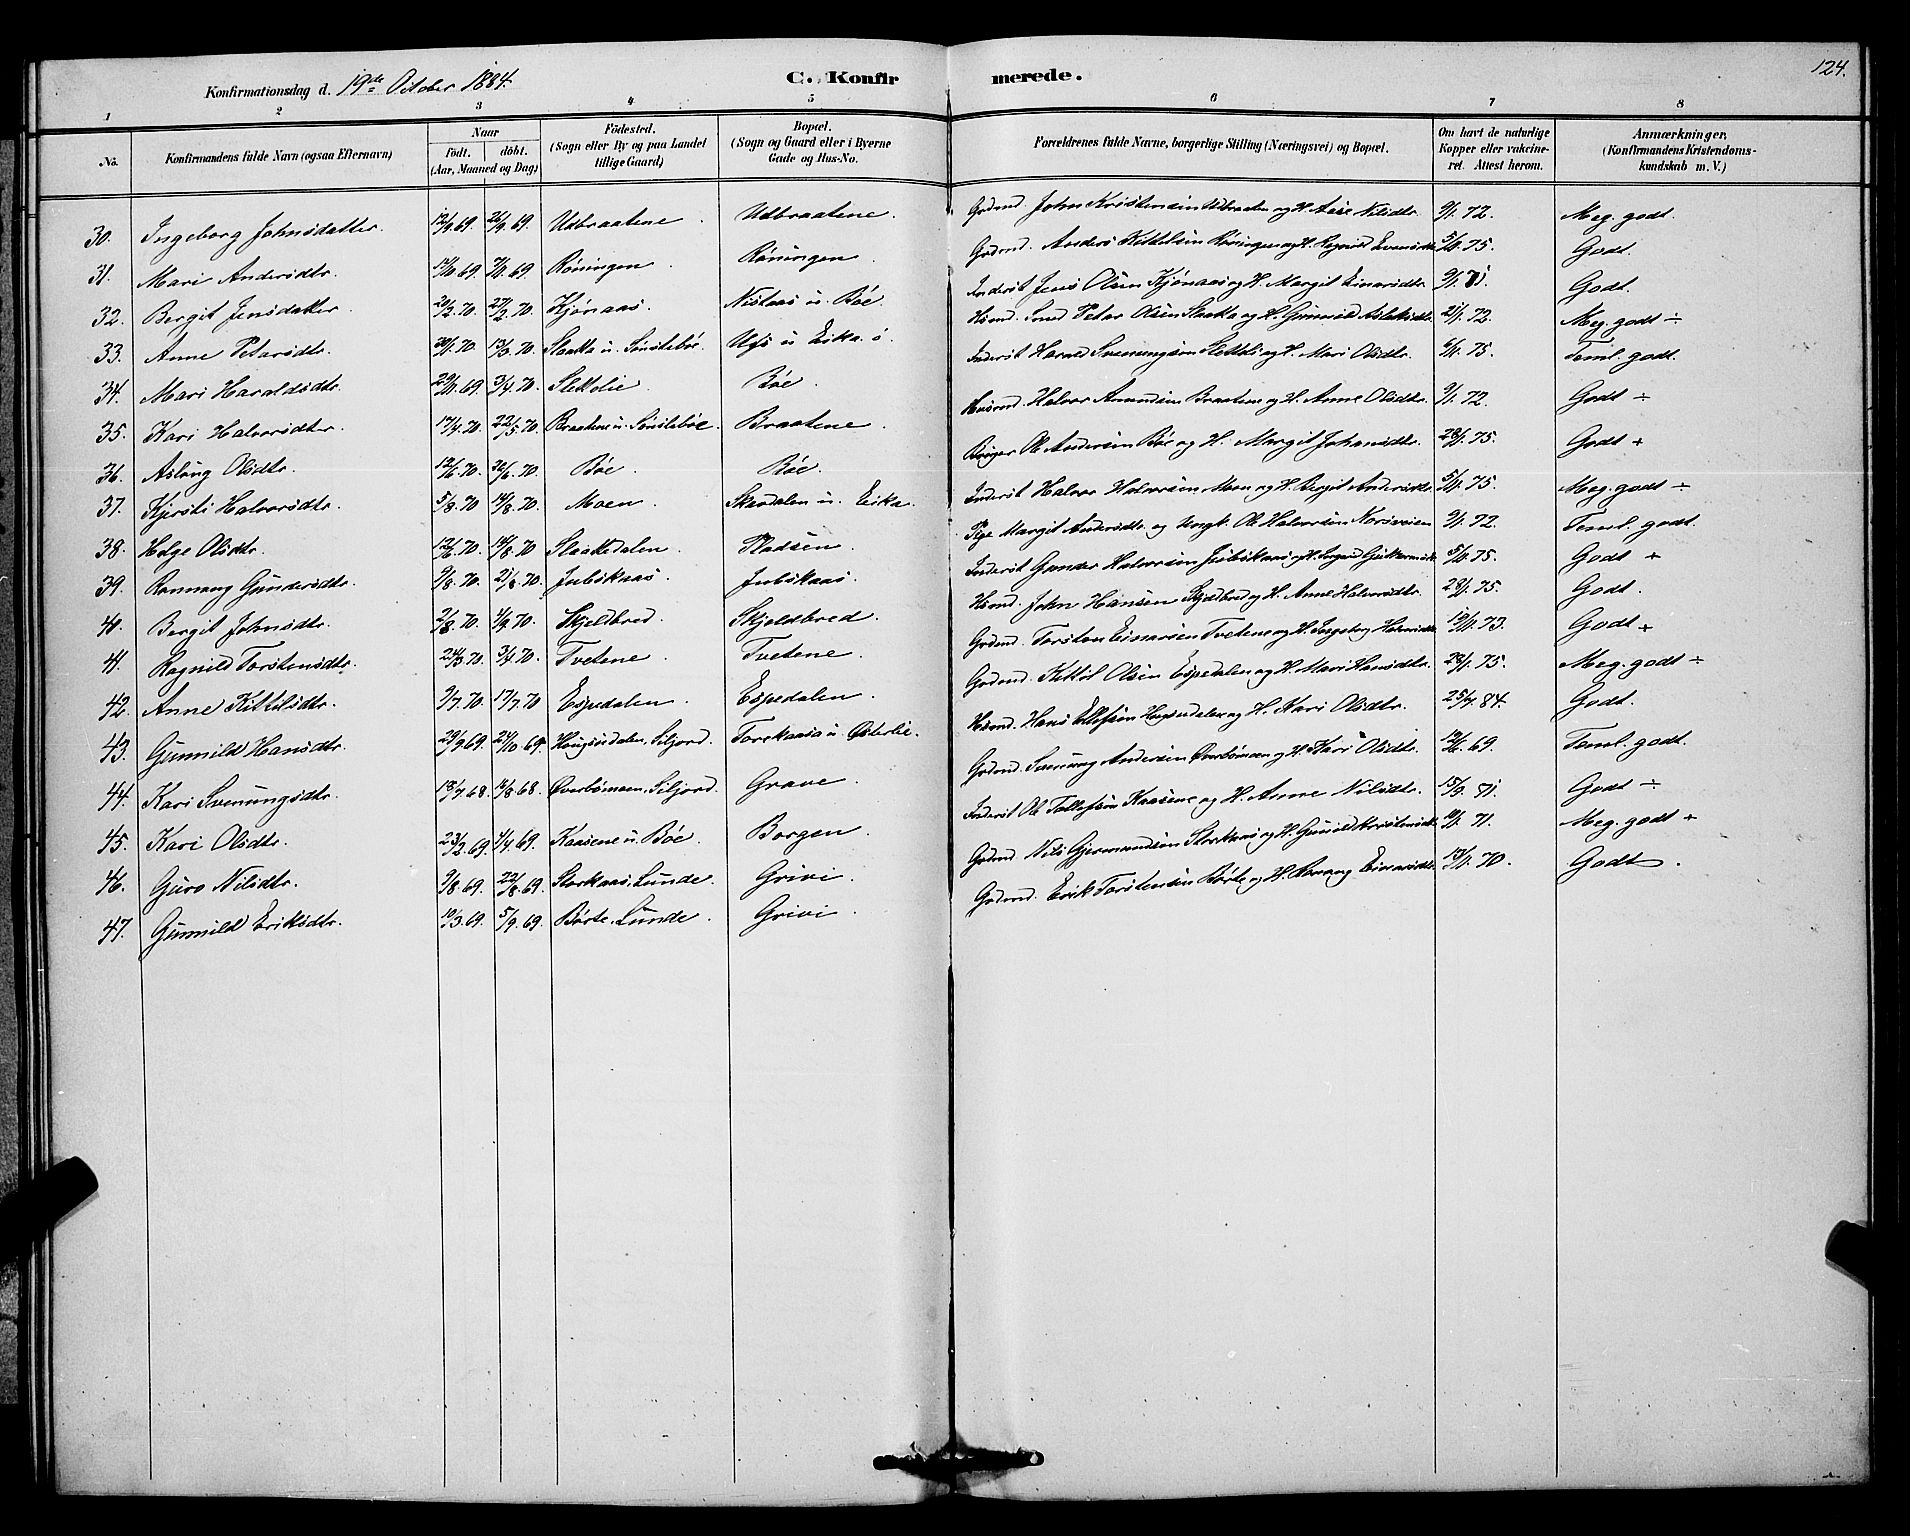 Konfirmationsdag d. 19de October 1884. C. Konfirmerede. 124.
1 2 3 4 5 6 7 8
No. Konfirmandens fulde Navn (ogsaa Efternavn) Naar Født, døbt. (Aar, Maaned og Dag) Födested. (Sogn eller By og paa Landet tillige Gaard) Bopæl. (Sogn og Gaard eller i Byerne Gade og Hus-No. Forældrenes fulde Navne, borgerlige Stilling (Næringsvei) og Bopæl. Om havt de naturlige Kopper eller vakcineret. Attest herom. Anmærkninger, (Konfirmandens Kristendomskundskab m. V.)
30. Ingeborg Johnsdatter. 12/9 69. 26/9 69. Udbraatene. Udbraatene. Grdmd. John Kristensen Udbraaten og H. Aase Nilsdtr. 9/1. 72. Meg. godt.
31. Mari Andersdtr. 69. 7/11. 69. Røningen. Røningen. Grdmd. Anders Kittelsen Røningen og H. Ragnild Evensdtr. 5/11. 75. Godt.
32. Bergit Jensdatter. 20/2. 70. 27/2. 70. Kjønaas. Nistaas u. Bøe. Inderst Jens Olsen Kjønaas og H. Margit Einarsdtr. Godt.
33. Anne Petersdtr. 20/1. 70. 13/3. 70. Slaaka u. Sønstebø. Ufs u Eika. Husmd. Smed Peter Olsen Slaaka og H. Gunnild Aslaksdtr. 21/1. 72. Meg. godt ÷
34. Mari Haraldsdtr. 29/11. 69. 3/4. 70. Slettelie. Bøe. Inderst Harald Svenungsen Sletteli og H. Mari Olsdtr. 75. Teml. godt.
35. Kari Halvorsdtr. 17/4. 70. 22/5. 70. Braatene u. Sønstebøe. Braatene. Husmd. Halvor Amundsen Braatene og H. Anne Olsdtr. 9/1. 72. Godt ÷
36. Aslaug Olsdtr. 12/6. 70. 26/6. 70. Bøe. Bøe. Ole Andersen Bøe og H. Margit Johansdtr. 28/1. 75. Godt +
37. Kjersti Halvorsdtr. 5/8. 70 14/8. 70. Moen. Skardalen u. Eika. Inderst Halvor Halvorsen Moen og H. Bergit Andersdtr. 5/11. 75. Meg. godt ÷
38. Helge Olsdtr. 12/6. 70. 14/8. 70 Slaakedalen. Pladsen. Pige Margit Andersdtr. og ungk. Ole Halvorsen 9/1. 72. Teml. godt.
39. Rannaug Gundersdtr. 9/8. 70. 21/8. 70. Jubskaas. Jubskaas. Inderst Gunder Halvorsen Jubskaas og H. 5/11. 75. Godt +
40. Bergit Johnsdtr. 2/8. 70. 4/9. 70. Skjeldbred. Skjeldbred. Husmd. John Hansen Skjeldbred og H. Anne Halvorsdtr. 28/1. 75. Godt.
41. Ragnild Torstensdtr. 24/3. 70. 3/4. 70. Tvetene. Tvetene. Grdmd. Torsten Einarsen Tvetene og H. Ingeborg 19/11. 73. Godt +
42. Anne Kittilsdtr. 9/7. 70. 17/7. 70 Espedalen. Espedalen. Grdmd. Kittil Olsen Espedalen og H. Mari Hansdtr. 28/1. 75. Meg. godt ÷
43. Gunnild Hansdtr. 29/9. 69. 24/10 69. Siljord. Torekaasa u. Østerlie. Husmd. Hans Ellefsen og H. Kari Olsdtr. 25/4. 84. Godt.
44. Kari Svenungsdtr. 18/7. 68. 16/8. 68. Øverbømoen. Siljord. Grave Grdmd. Svenung Andersen Øverbømoen og H. Kari Olsdtr. 12/6. 69. Teml. godt.
45. Kari Olsdtr. 23/2. 69. 4/4. 69. Kaasene u. Bøe. Borgen. Inderst Ole Tollefsen Kaasene og H. Anne Nilsdtr. 15/9. 81. Godt ÷
46. Guro Nilsdtr. 3/8. 69. 22/8. 69. Storkaas, Lunde. Grivi. Grdmd. Nils Gjermundsen Storkaas og H. Gunild Kristensdtr. 10/1. 71. Meg. godt +
47. Gunnild Eriksdtr. 10/3. 69. 5/9. 69. Børte. Lunde. Grivi. Grdmd. Erik Torstensen Børte og H. Einarsdtr. 13/1. 70. Godt.